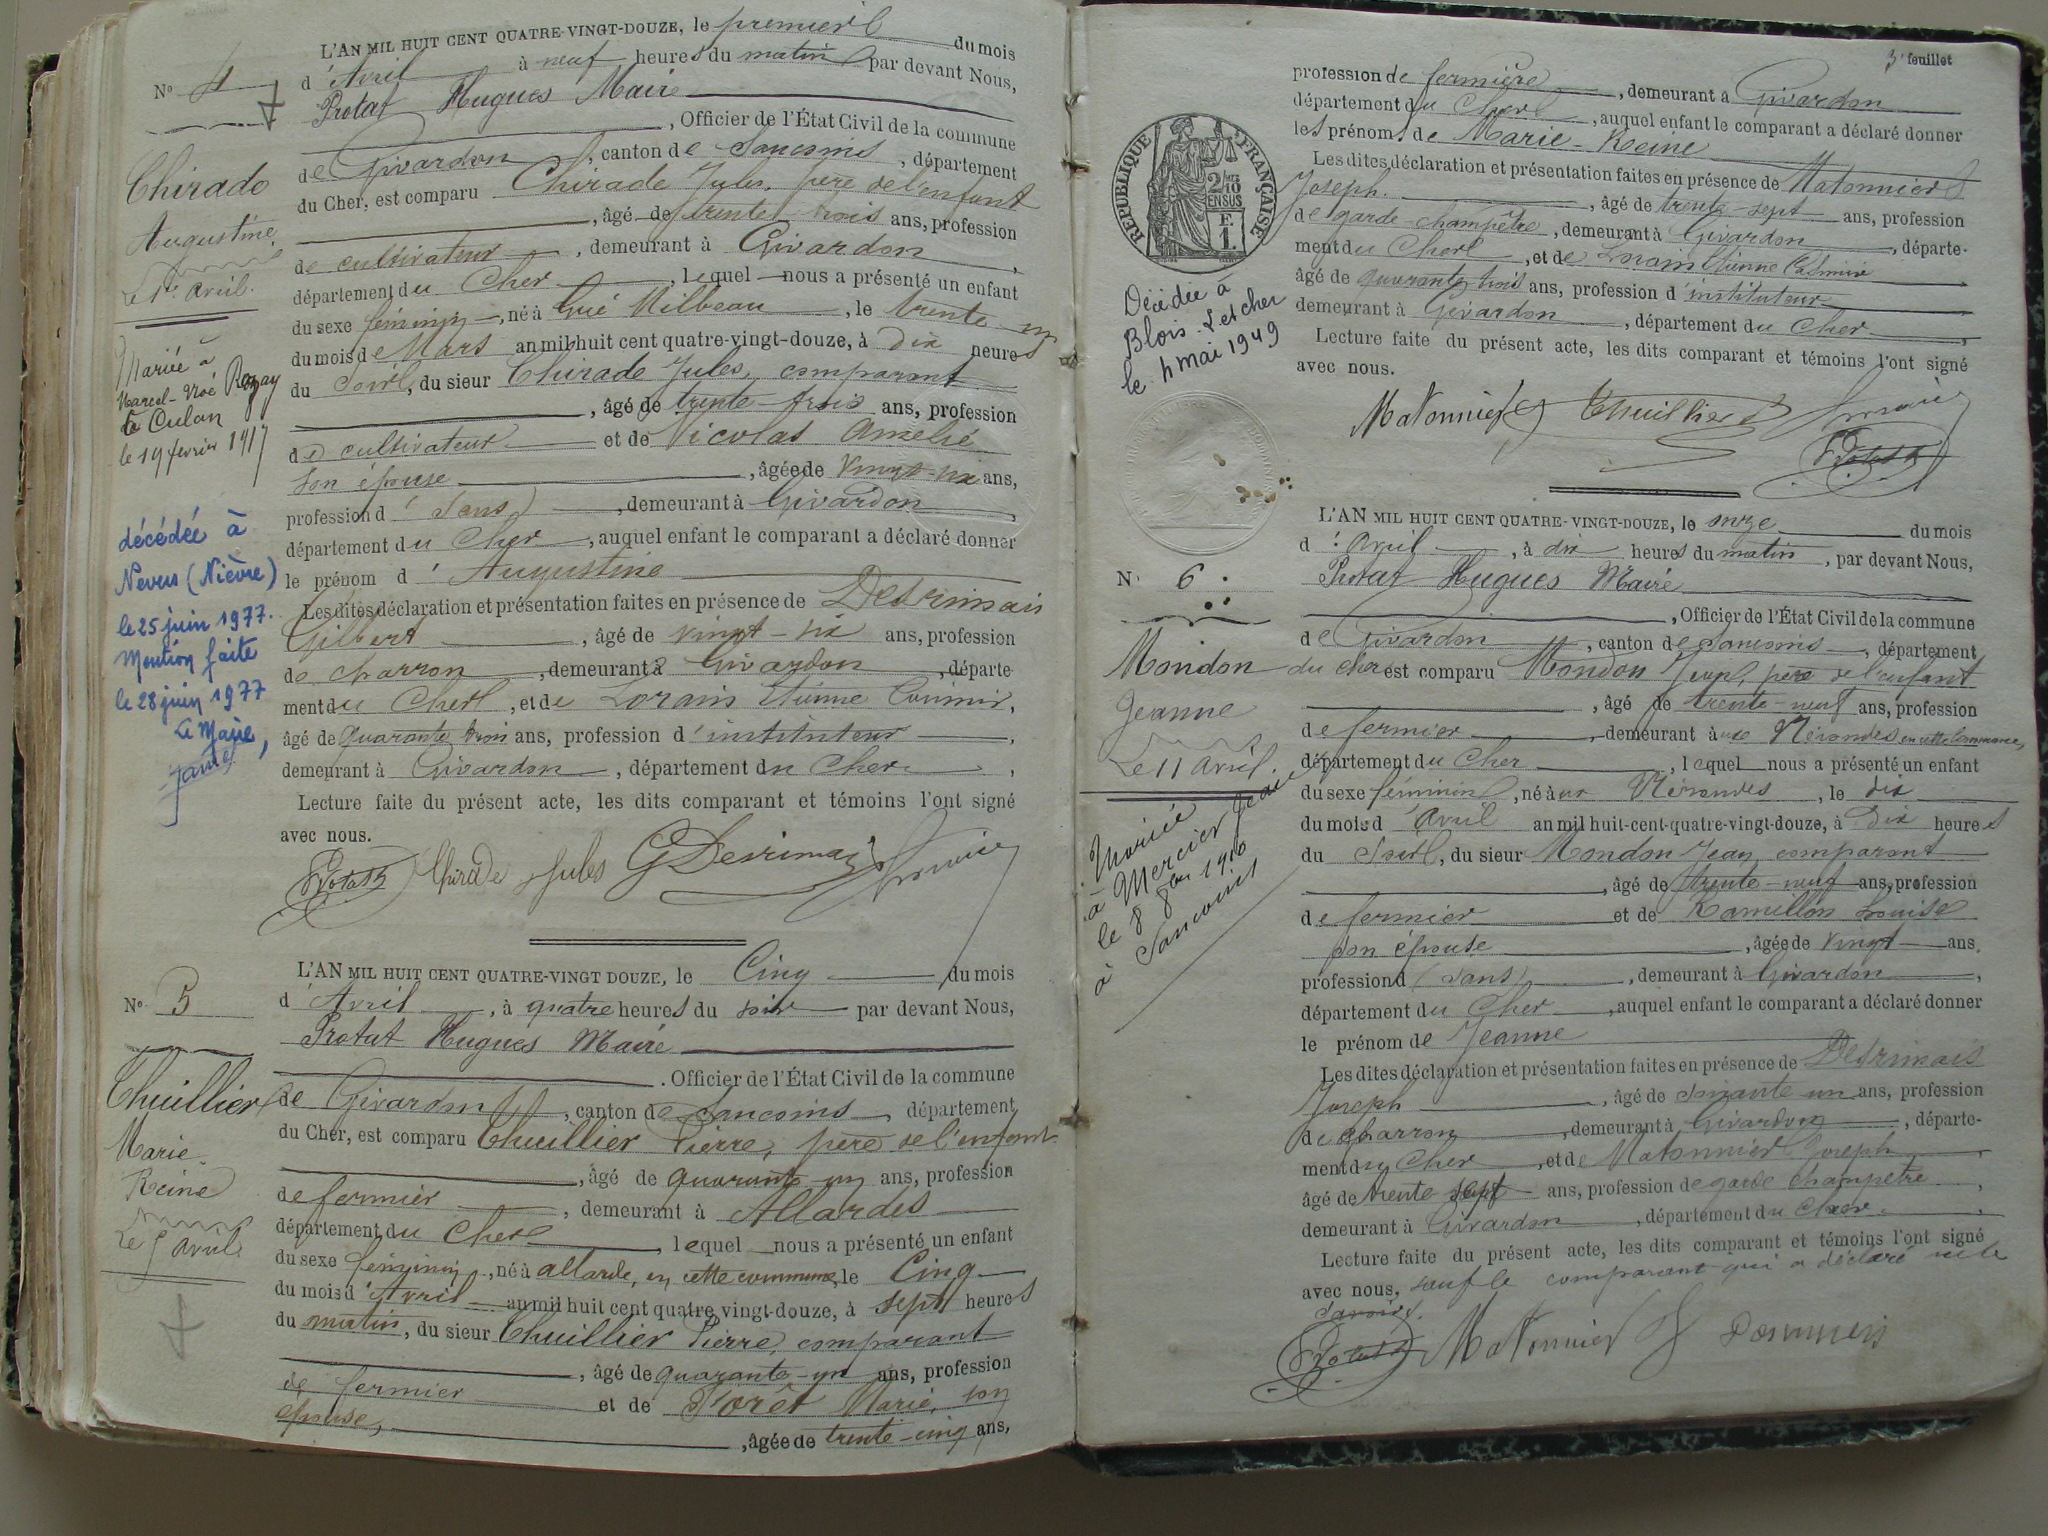 L'AN MIL HUIT CENT QUATRE-VINGT-DOUZE, le premier du mois
d'Avril à neuf heures du matin par devant Nous,
Nº 4
Protat Hugues Maire
, Officier de l'État Civil de la commune
de Givardon, canton de Sancoins, département
du Cher, est comparu Chirade Jules, père de l'enfant
, âgé de trente trois ans, profession
de cultivateur, demeurant à Givardon,
département du Cher, lequel nous a présenté un enfant
du sexe féminin, né à Gué Milbeau, le trente-un
du mois de Mars an mil huit cent quatre-vingt-douze, à Dix heures
du Soir, du sieur Chirade Jules, comparant
, âgé de trente-trois ans, profession
de cultivateur et de Nicolas Amélie
son épouse, âgée de vingt-six ans,
profession d' (Sans), demeurant à Givardon,
département du Cher, auquel enfant le comparant a déclaré donner
le prénom d'Augustine
Les dites déclaration et présentation faites en présence de Desrimais
Gilbert, âgé de vingt-six ans, profession
de charron, demeurant à Givardon, départe
ment du Cher, et de Lorain Etienne Casimir,
âgé de quarante trois ans, profession d'instituteur,
demeurant à Givardon, département du Cher,
Lecture faite du présent acte, les dits comparant et témoins l'ont signé
avec nous.
Protat Chirade Jules G Desrimais Lorain
Chirade
Augustine
Le 1er Avril.
Mariée à
Marcel-Noé Rezay
à Culan
le 19 février 1917
décédée à
Nevers (Nièvre)
le 25 juin 1977.
Mention faite
le 28 juin 1977
Le Maire,
L'AN MIL HUIT CENT QUATRE-VINGT DOUZE, le Cinq du mois
d'Avril, à quatre heures du soir par devant Nous,
Nº 5
Protat Hugues Maire
. Officier de l'État Civil de la commune
de Givardon, canton de Sancoins, département
du Cher, est comparu Thuillier Pierre, père de l'enfant
, âgé de quarante un ans, profession
de fermier, demeurant à Allardes
département du Cher, lequel nous a présenté un enfant
du sexe féminin, né à allarde, en cette commune, le Cinq
du mois d'Avril an mil huit cent quatre vingt-douze, à sept heures
du matin, du sieur Thuillier Pierre, comparant
, âgé de quarante-un ans, profession
de fermier et de Forêt Marie, son
épouse, , âgée de trente-cinq ans,
Thuillier
Marie
Reine
Le 5 Avril
3e feuillet
profession de fermière, demeurant à Givardon
département du Cher, auquel enfant le comparant a déclaré donner
les prénoms de Marie-Reine
Les dites déclaration et présentation faites en présence de Matonnier
Joseph, âgé de trente-sept ans, profession
de garde-champêtre, demeurant à Givardon, départe-
ment du Cher, et de Lorain Etienne Casimir
âgé de quarante trois ans, profession d'instituteur
demeurant à Givardon, département du Cher,
Lecture faite du présent acte, les dits comparant et témoins l'ont signé
avec nous.
Matonnier Thuillier Lorain
Protat
RÉPUBLIQUE FRANÇAISE
2/10 EN SUS
1 F.
Décédée à
Blois L et cher
le 4 mai 1949
L'AN MIL HUIT CENT QUATRE-VINGT-DOUZE, le onze du mois
d'Avril, à dix heures du matin, par devant Nous,
N. 6
Protat Hugues Maire
, Officier de l'État Civil de la commune
de Givardon, canton de Sancoins, département
du Cher est comparu Mondon Jean, père de l'enfant
, âgé de trente-neuf ans, profession
de fermier, demeurant aux Nérondes en cette commune,
département du Cher, lequel nous a présenté un enfant
du sexe féminin, né aux Nérondes, le dix
du mois d'Avril an mil huit-cent-quatre-vingt-douze, à Dix heures
du Soir, du sieur Mondon Jean comparant
, âgé de trente-neuf ans, profession
de fermier et de Ramillon Louise
son épouse, âgée de vingt ans.
profession d (sans), demeurant à Givardon,
département du Cher, auquel enfant le comparant a déclaré donner
le prénom de Jeanne
Les dites déclaration et présentation faites en présence de Desrimais
Joseph, âgé de soixante un ans, profession
de charron, demeurant à Givardon, départe-
ment du Cher, et de Matonnier Joseph,
âgé de trente sept ans, profession de garde champêtre,
demeurant à Givardon, département du Cher.
Lecture faite du présent acte, les dits comparant et témoins l'ont signé
avec nous, sauf le comparant qui a déclaré ne le
savoir.
Protat Matonnier
Mondon
Jeanne
Le 11 Avril.
Mariée
à Mercier Jean
le 8 8bre 1910
à Sancoins